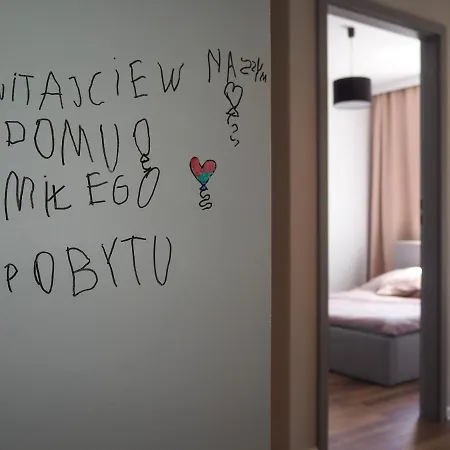 WITAJCIE W NASZYM
DOMU
MIŁEGO
POBYTU